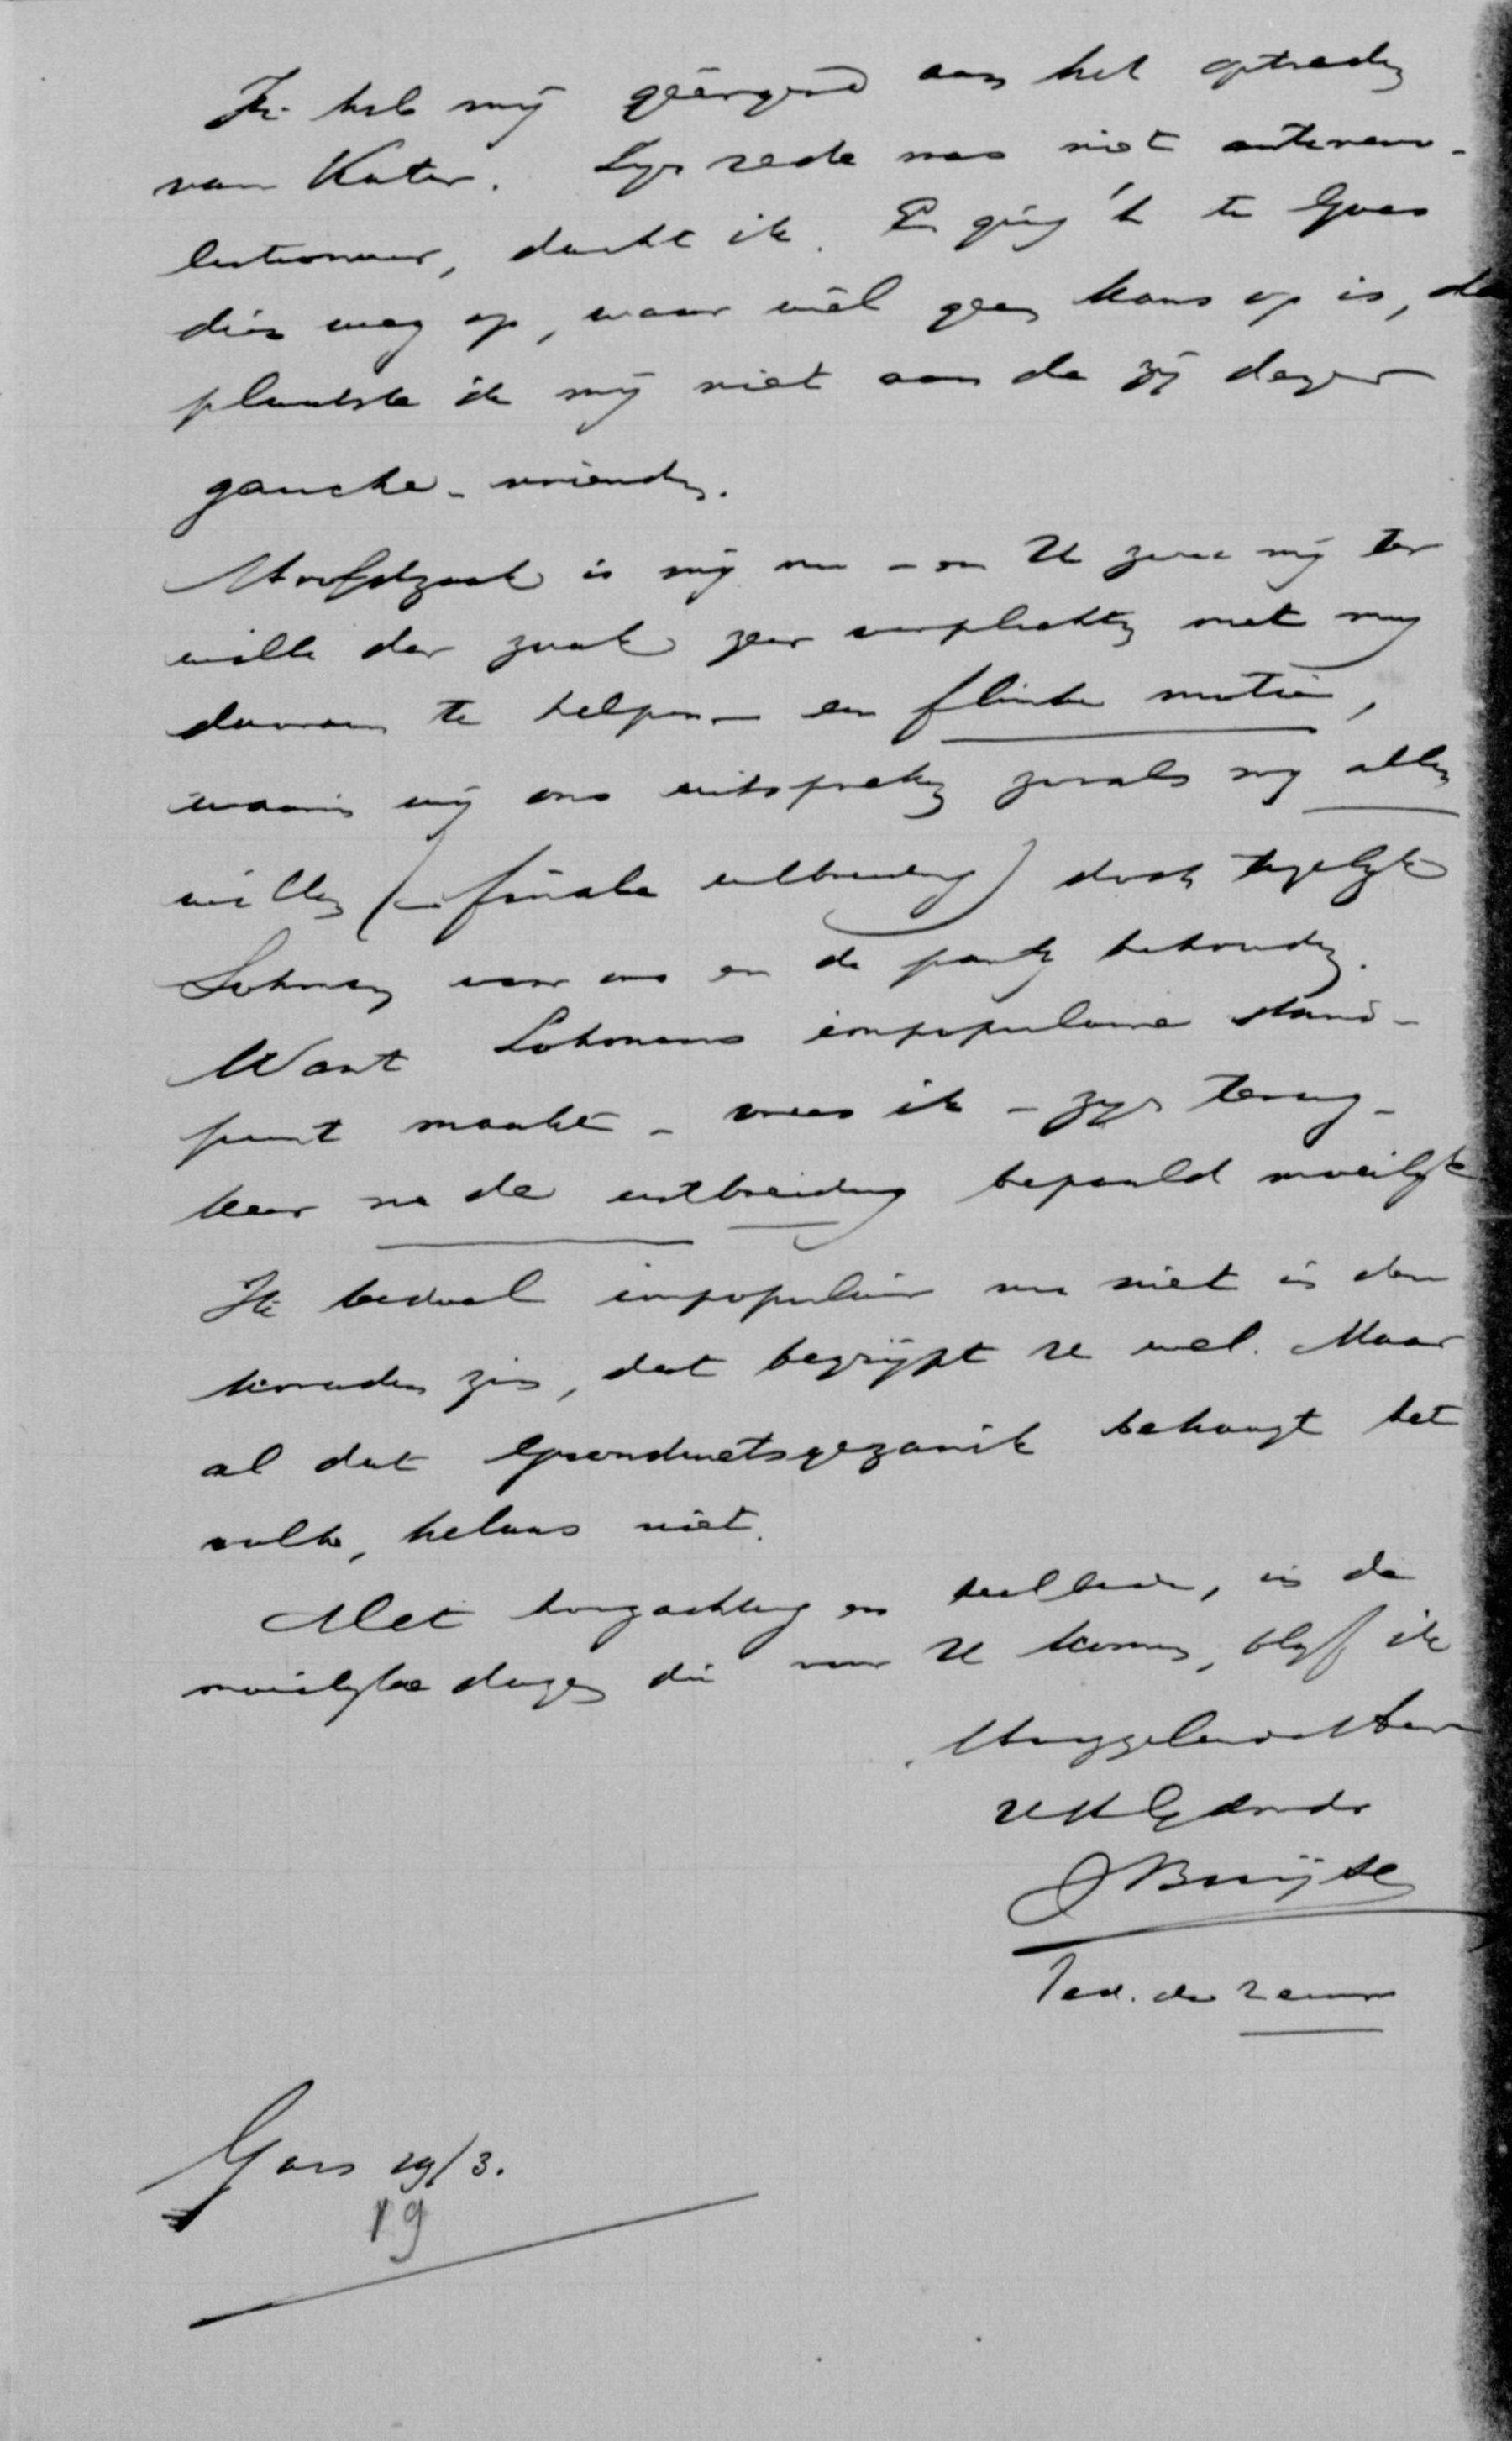 Ik heb mij geërgerd aan het optreden
van Kater. Zijn rede was niet antirevo-
lutionair, dacht ik. En ging 't te Goes
dien weg op, waar wèl geen kans op is, dan
plaatste ik mij niet aan de zij dezer
gauche-vrienden.
Hoofdzaak is mij nu - en U zoudt mij ter
wille der zaak zeer verplichten met mij
daaraan te helpen - een flinke motie,
waarin wij ons uitspreken zooals wij allen
willen (- finale uitbreiding) doch tegelijk
Lohman voor ons en de partij behouden.
Want Lohmans impopulaire stand-
punt maakt - vrees ik - zijn terug-
keer na de uitbreiding bepaald moeilijk
Ik bedoel impopulair nu niet in den
kwaden zin, dat begrijpt U wel. Maar
al dat Grondwetsgezanik behaagt het
volk, helaas niet.
Met hoogachting en heilbede, in de
moeilijke dagen die voor U komen, blijf ik
Hooggeleerde Heer
UHGdienstv
Buijze
red. de Zeeuw
Goes 19/3.
19